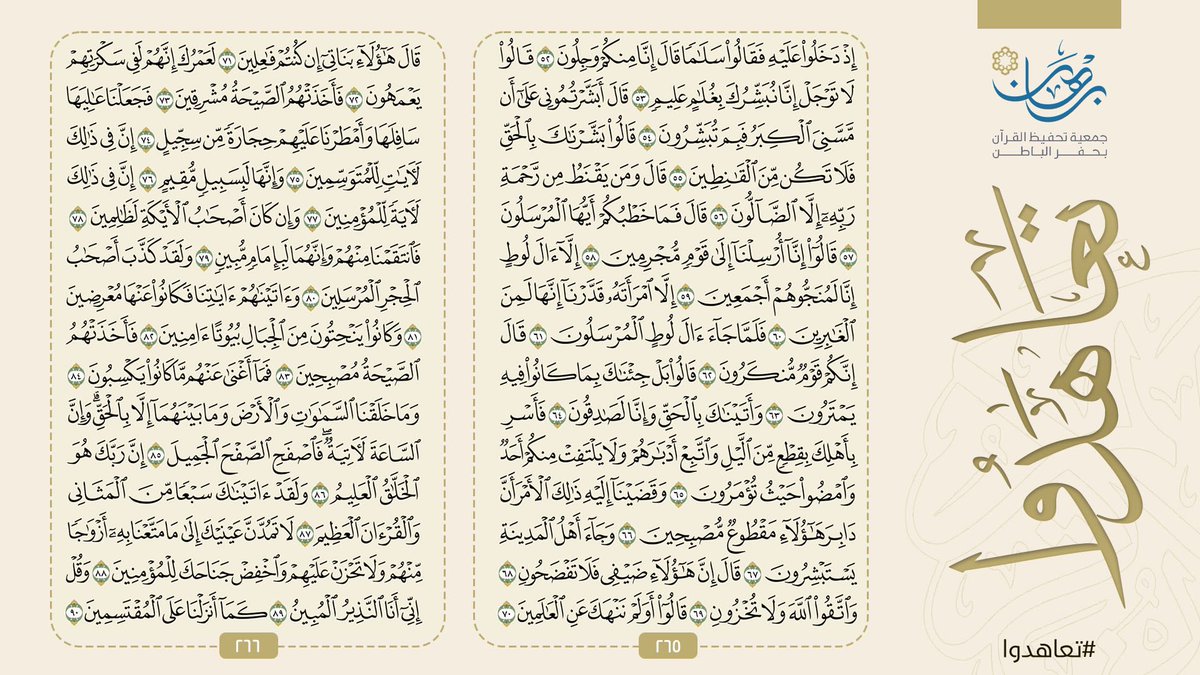 برهان
جمعية تحفيظ القرآن
بحفر الباطن
تعاهدوا
#تعاهدوا
إِذۡ دَخَلُواْ عَلَيۡهِ فَقَالُواْ سَلَٰمٗا قَالَ إِنَّا مِنكُمۡ وَجِلُونَ ٥٢ قَالُواْ
لَا تَوۡجَلۡ إِنَّا نُبَشِّرُكَ بِغُلَٰمٍ عَلِيمٖ ٥٣ قَالَ أَبَشَّرۡتُمُونِي عَلَىٰٓ أَن
مَّسَّنِيَ ٱلۡكِبَرُ فَبِمَ تُبَشِّرُونَ ٥٤ قَالُواْ بَشَّرۡنَٰكَ بِٱلۡحَقِّ
فَلَا تَكُن مِّنَ ٱلۡقَٰنِطِينَ ٥٥ قَالَ وَمَن يَقۡنَطُ مِن رَّحۡمَةِ
رَبِّهِۦٓ إِلَّا ٱلضَّآلُّونَ ٥٦ قَالَ فَمَا خَطۡبُكُمۡ أَيُّهَا ٱلۡمُرۡسَلُونَ
٥٧ قَالُوٓاْ إِنَّآ أُرۡسِلۡنَآ إِلَىٰ قَوۡمٖ مُّجۡرِمِينَ ٥٨ إِلَّآ ءَالَ لُوطٍ
إِنَّا لَمُنَجُّوهُمۡ أَجۡمَعِينَ ٥٩ إِلَّا ٱمۡرَأَتَهُۥ قَدَّرۡنَآ إِنَّهَا لَمِنَ
ٱلۡغَٰبِرِينَ ٦٠ فَلَمَّا جَآءَ ءَالَ لُوطٍ ٱلۡمُرۡسَلُونَ ٦١ قَالَ
إِنَّكُمۡ قَوۡمٞ مُّنكَرُونَ ٦٢ قَالُواْ بَلۡ جِئۡنَٰكَ بِمَا كَانُواْ فِيهِ
يَمۡتَرُونَ ٦٣ وَأَتَيۡنَٰكَ بِٱلۡحَقِّ وَإِنَّا لَصَٰدِقُونَ ٦٤ فَأَسۡرِ
بِأَهۡلِكَ بِقِطۡعٖ مِّنَ ٱلَّيۡلِ وَٱتَّبِعۡ أَدۡبَٰرَهُمۡ وَلَا يَلۡتَفِتۡ مِنكُمۡ أَحَدٞ
وَٱمۡضُواْ حَيۡثُ تُؤۡمَرُونَ ٦٥ وَقَضَيۡنَآ إِلَيۡهِ ذَٰلِكَ ٱلۡأَمۡرَ أَنَّ
دَابِرَ هَٰٓؤُلَآءِ مَقۡطُوعٞ مُّصۡبِحِينَ ٦٦ وَجَآءَ أَهۡلُ ٱلۡمَدِينَةِ
يَسۡتَبۡشِرُونَ ٦٧ قَالَ إِنَّ هَٰٓؤُلَآءِ ضَيۡفِي فَلَا تَفۡضَحُونِ ٦٨
وَٱتَّقُواْ ٱللَّهَ وَلَا تُخۡزُونِ ٦٩ قَالُوٓاْ أَوَلَمۡ نَنۡهَكَ عَنِ ٱلۡعَٰلَمِينَ ٧٠
٢٦٥
قَالَ هَٰٓؤُلَآءِ بَنَاتِيٓ إِن كُنتُمۡ فَٰعِلِينَ ٧١ لَعَمۡرُكَ إِنَّهُمۡ لَفِي سَكۡرَتِهِمۡ
يَعۡمَهُونَ ٧٢ فَأَخَذَتۡهُمُ ٱلصَّيۡحَةُ مُشۡرِقِينَ ٧٣ فَجَعَلۡنَا عَٰلِيَهَا
سَافِلَهَا وَأَمۡطَرۡنَا عَلَيۡهِمۡ حِجَارَةٗ مِّن سِجِّيلٍ ٧٤ إِنَّ فِي ذَٰلِكَ
لَأٓيَٰتٖ لِّلۡمُتَوَسِّمِينَ ٧٥ وَإِنَّهَا لَبِسَبِيلٖ مُّقِيمٍ ٧٦ إِنَّ فِي ذَٰلِكَ
لَأٓيَةٗ لِّلۡمُؤۡمِنِينَ ٧٧ وَإِن كَانَ أَصۡحَٰبُ ٱلۡأَيۡكَةِ لَظَٰلِمِينَ ٧٨
فَٱنتَقَمۡنَا مِنۡهُمۡ وَإِنَّهُمَا لَبِإِمَامٖ مُّبِينٖ ٧٩ وَلَقَدۡ كَذَّبَ أَصۡحَٰبُ
ٱلۡحِجۡرِ ٱلۡمُرۡسَلِينَ ٨٠ وَءَاتَيۡنَٰهُمۡ ءَايَٰتِنَا فَكَانُواْ عَنۡهَا مُعۡرِضِينَ
٨١ وَكَانُواْ يَنۡحِتُونَ مِنَ ٱلۡجِبَالِ بُيُوتًا ءَامِنِينَ ٨٢ فَأَخَذَتۡهُمُ
ٱلصَّيۡحَةُ مُصۡبِحِينَ ٨٣ فَمَآ أَغۡنَىٰ عَنۡهُم مَّا كَانُواْ يَكۡسِبُونَ ٨٤
وَمَا خَلَقۡنَا ٱلسَّمَٰوَٰتِ وَٱلۡأَرۡضَ وَمَا بَيۡنَهُمَآ إِلَّا بِٱلۡحَقِّۗ وَإِنَّ
ٱلسَّاعَةَ لَأٓتِيَةٞۖ فَٱصۡفَحِ ٱلصَّفۡحَ ٱلۡجَمِيلَ ٨٥ إِنَّ رَبَّكَ هُوَ
ٱلۡخَلَّٰقُ ٱلۡعَلِيمُ ٨٦ وَلَقَدۡ ءَاتَيۡنَٰكَ سَبۡعٗا مِّنَ ٱلۡمَثَانِي
وَٱلۡقُرۡءَانَ ٱلۡعَظِيمَ ٨٧ لَا تَمُدَّنَّ عَيۡنَيۡكَ إِلَىٰ مَا مَتَّعۡنَا بِهِۦٓ أَزۡوَٰجٗا
مِّنۡهُمۡ وَلَا تَحۡزَنۡ عَلَيۡهِمۡ وَٱخۡفِضۡ جَنَاحَكَ لِلۡمُؤۡمِنِينَ ٨٨ وَقُلۡ
إِنِّيٓ أَنَا ٱلنَّذِيرُ ٱلۡمُبِينُ ٨٩ كَمَآ أَنزَلۡنَا عَلَى ٱلۡمُقۡتَسِمِينَ ٩٠
٢٦٦